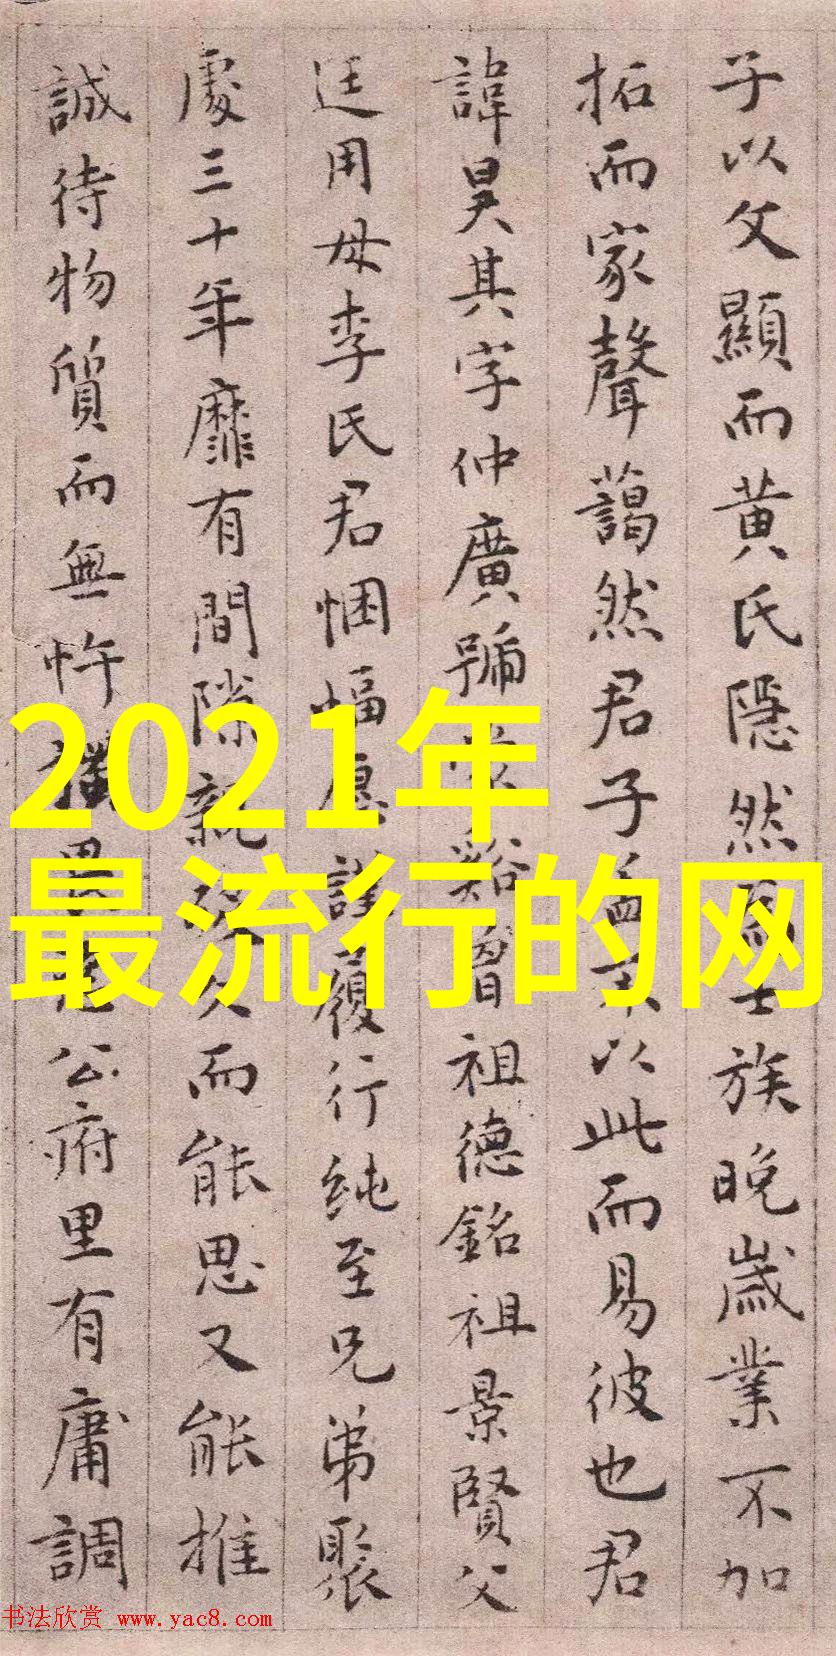 子以父顯而黄氏隠然士族晚歲業不加
拓而家聲藹然君子盖不以此而易彼也君
諱昊其字仲廣號谿曾祖德銘祖景賢父
廷用母李氏君悃愊愿謹履行纯至兄弟聚
處三十年靡有間隙親殁久而能思又能推
誠待物質而無忤公府里有庸調
2021年
最流行的网
书法欣赏 www.yac8.com